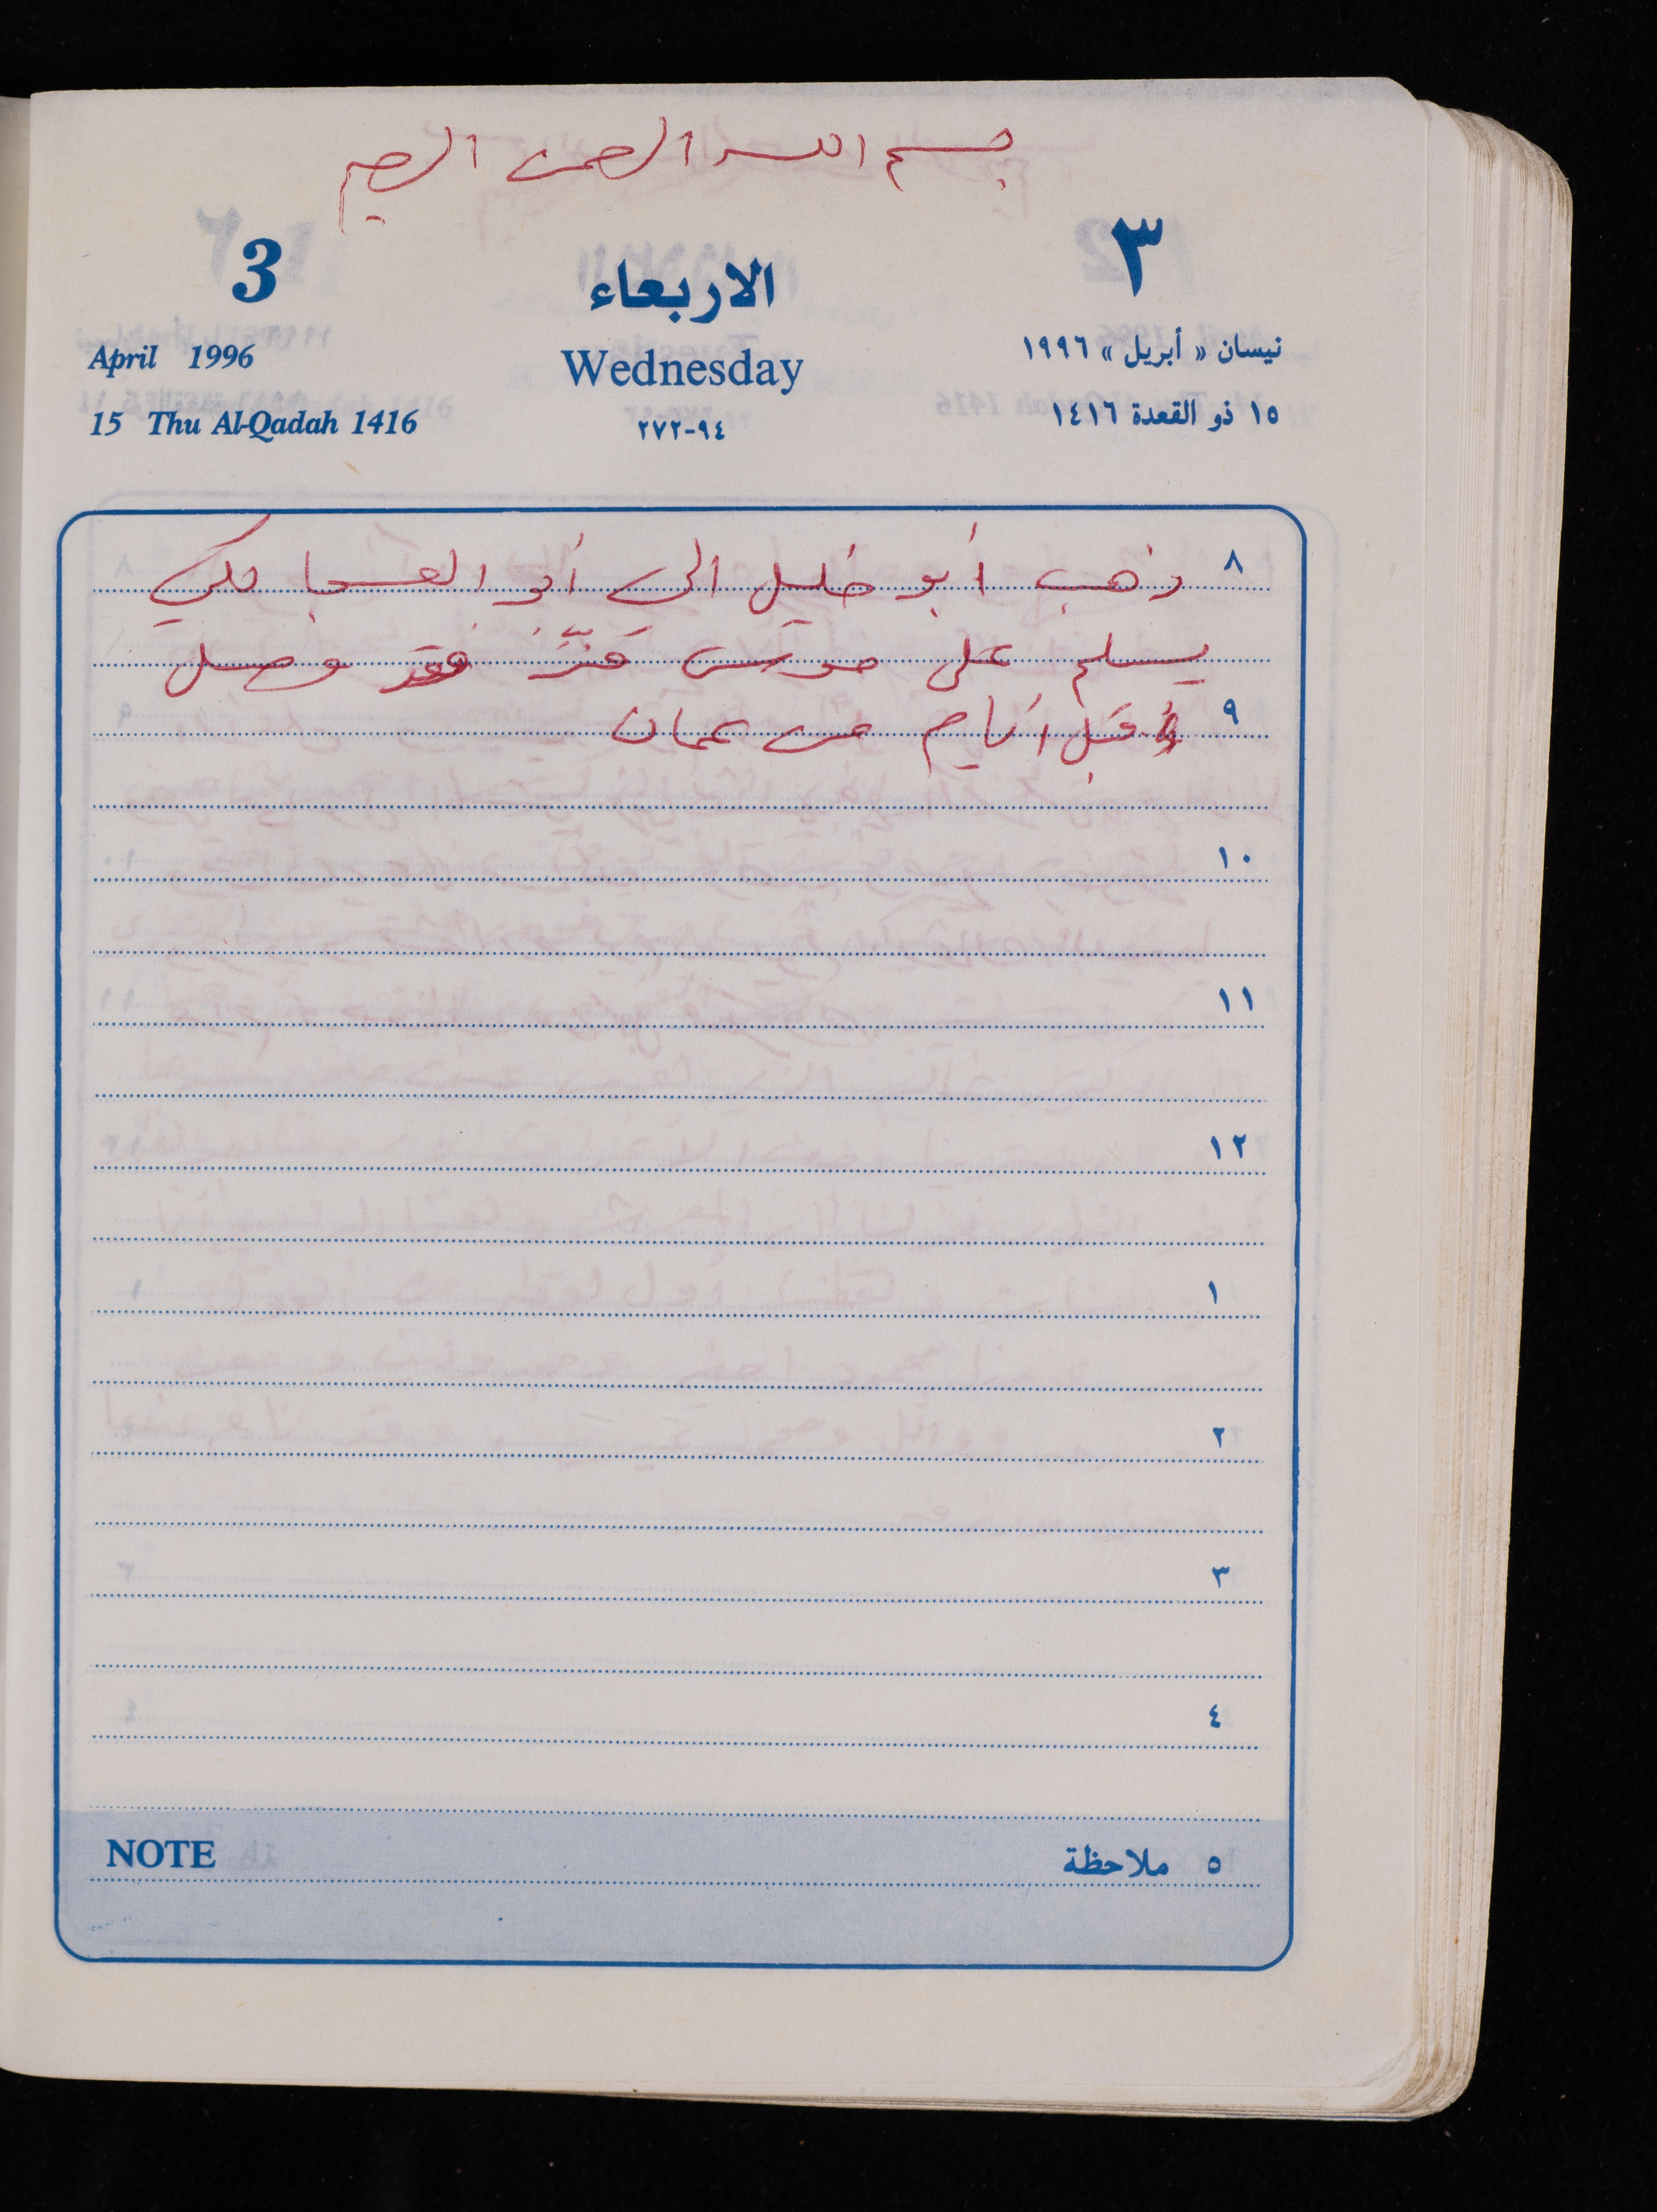 بسم الله الرحمن الرحيم
3 الاربعاء ٣
April 1996 Wednesday نيسان « أبريل » ١٩٩٦
15 Thu Al-Qadah 1416 ٩٤-٢٧٢ ١٥ ذو القعدة ١٤١٦
٨ ذهب أبو خليل الى أبو العسجا لكي
يسلم على موسى فقد وصل
٩ قبل أيام من عمان
١٠
١١
١٢
١
٢
٣
٤
NOTE ٥ ملاحظة